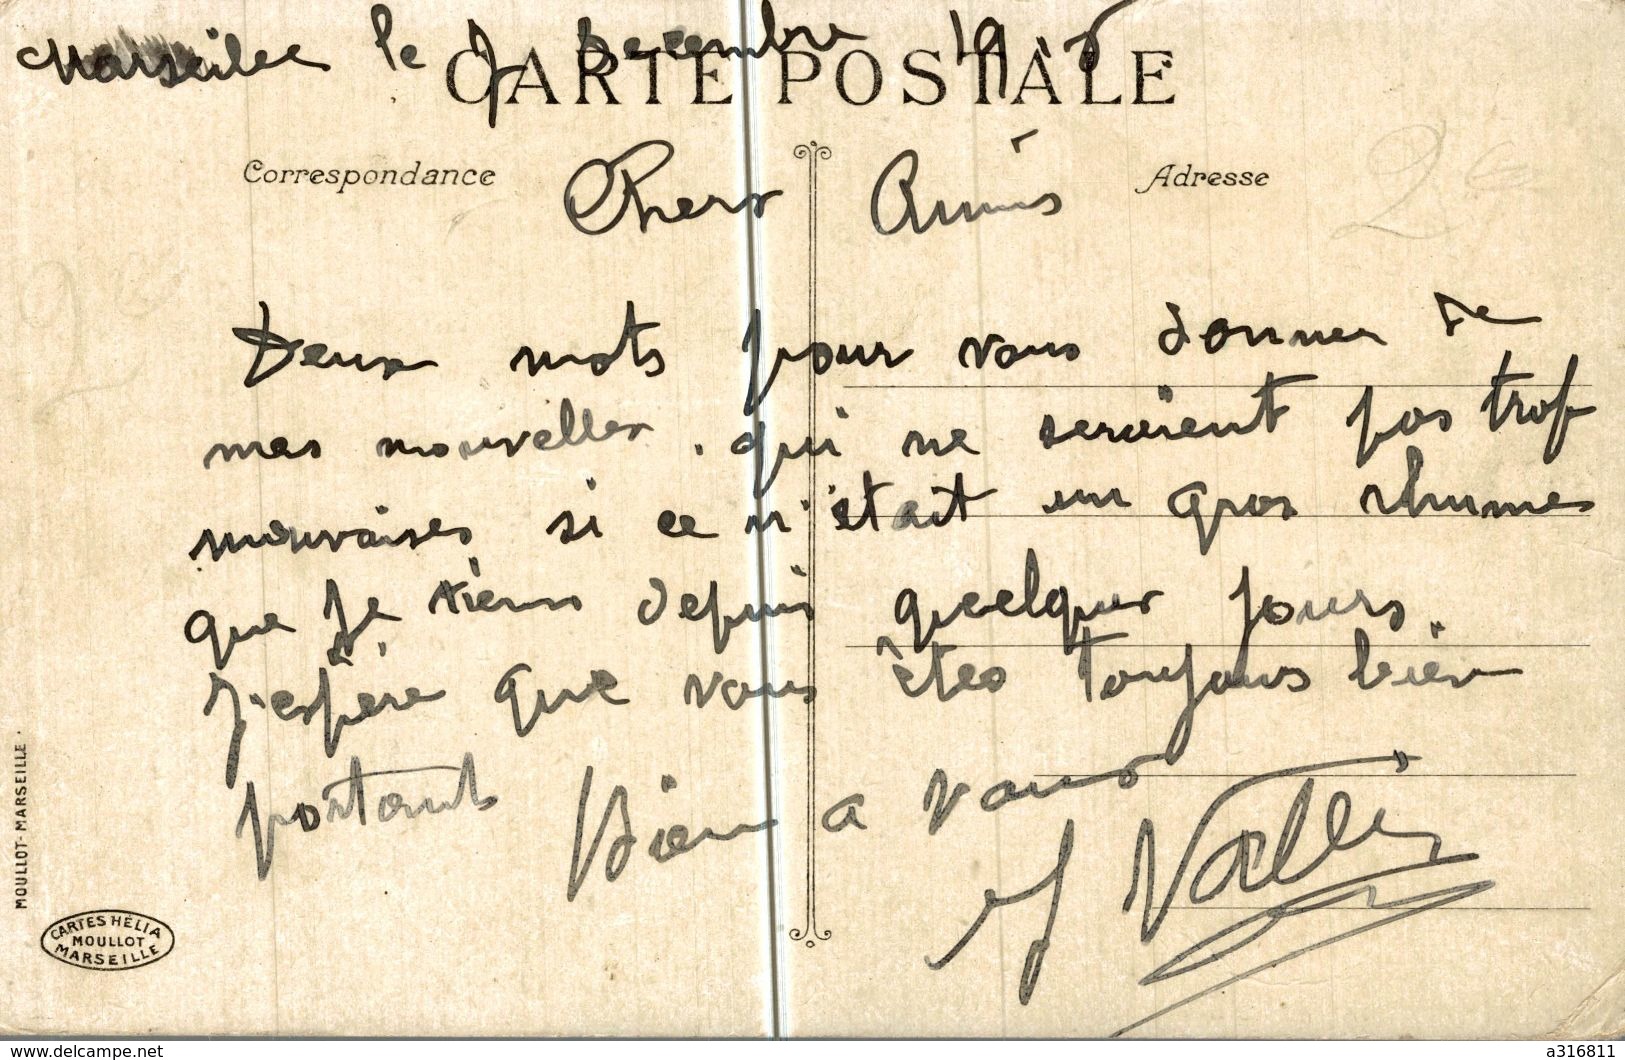 Marseille le 7 Decembre 19
CARTE POSTALE
Correspondance
Adresse
Chers Amis
Deux mots pour vous donner de
mes nouvelles. qui ne seraient pas trop
mauvaises si ce n'était un gros rhumes
que je tiens depuis quelques jours
J'espère que vous êtes toujours bien
portant Bien a vous
J Vallé
MOULLOT-MARSEILLE.
CARTES HÉLIA
MOULLOT
MARSEILLE
www.delcampe.net
a316811